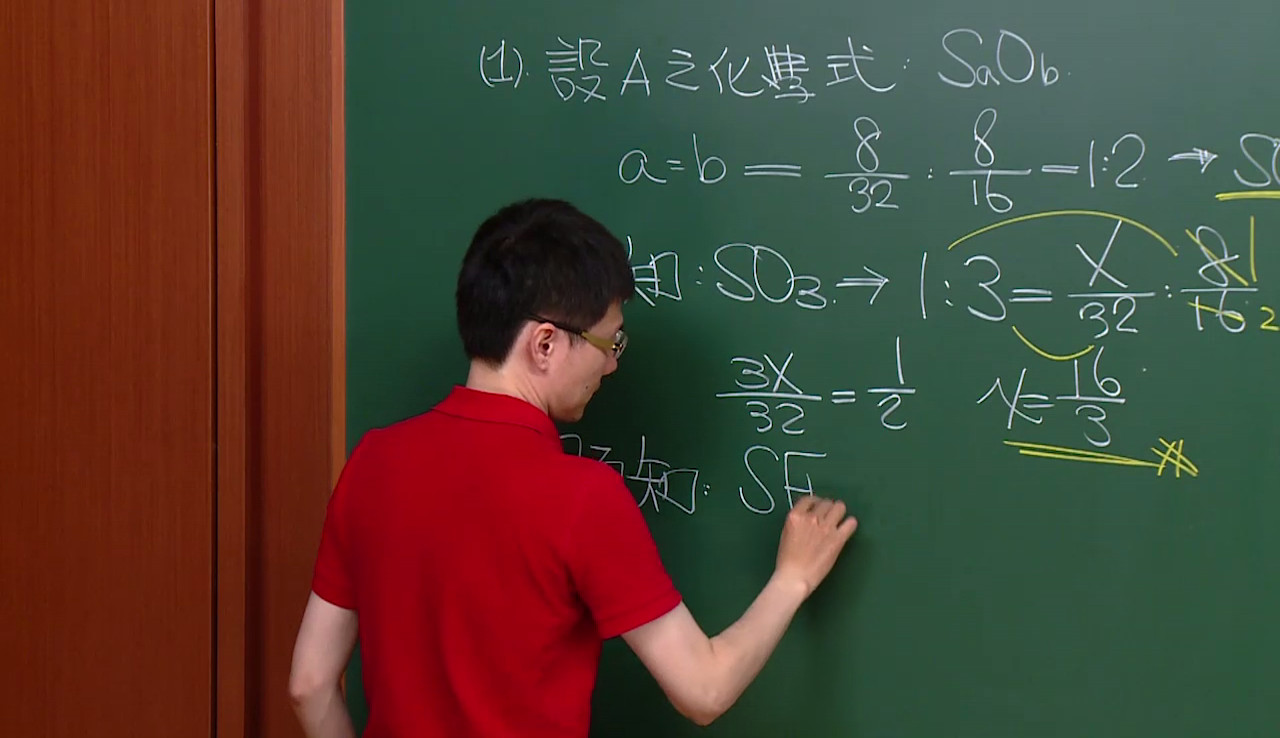 (1). 設 A 之化學式: SaOb.
a=b = 8/32 : 8/16 = 1:2 → S
知: SO3. → 1:3 = X/32 : 8/16 1 2
3X/32 = 1/2 X = 16/3
知: SF